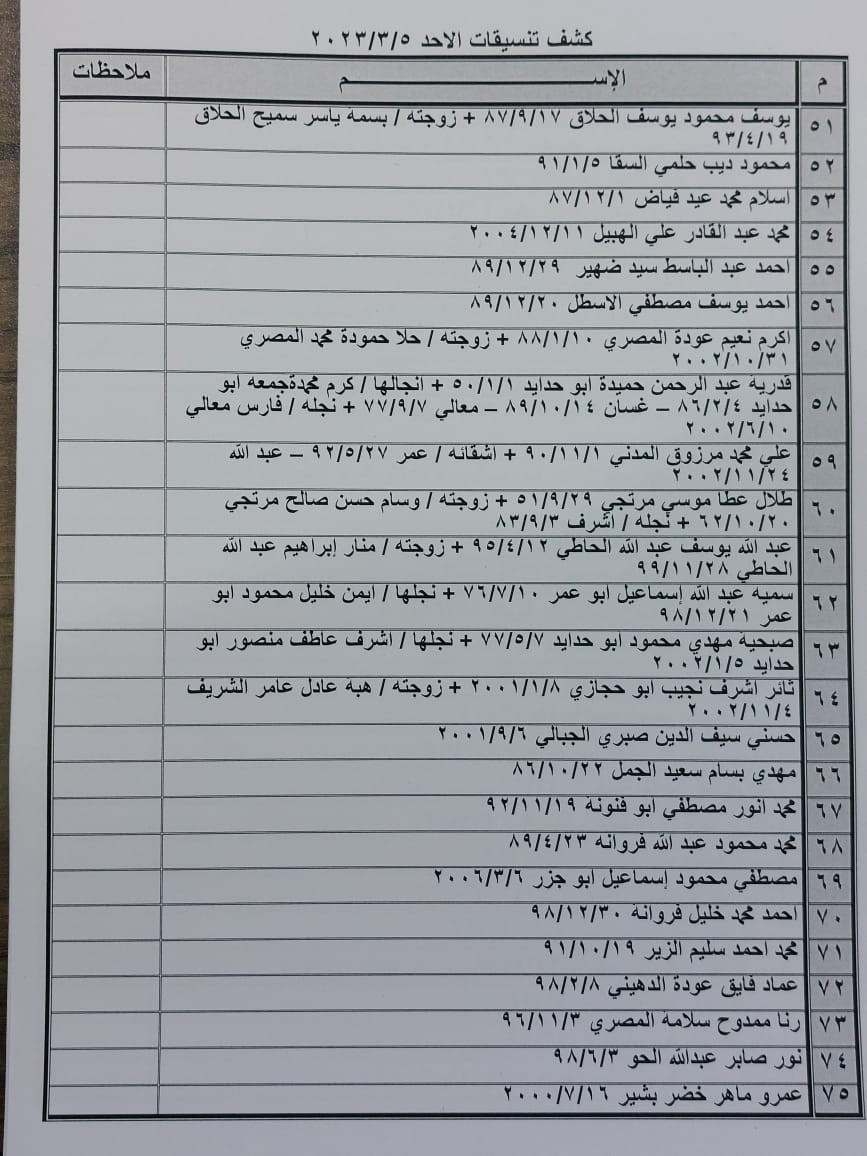 كشف تنسيقات الاحد ٢٠٢٣/٣/٥
م الإســـــــــــــــــــم ملاحظات
٥١ يوسف محمود يوسف الحلاق ٨٧/٩/١٧ + زوجته / بسمة ياسر سميح الحلاق
٩٣/٤/١٩
٥٢ محمود ديب حلمي السقا ٩١/١/٥
٥٣ اسلام محمد عيد فياض ٨٧/١٢/١
٥٤ محمد عبد القادر علي الهبيل ٢٠٠٤/١٢/١١
٥٥ احمد عبد الباسط سيد ضهير ٨٩/١٢/٢٩
٥٦ احمد يوسف مصطفي الاسطل ٨٩/١٢/٢٠
٥٧ اكرم نعيم عودة المصري ٨٨/١/١٠ + زوجته / حلا حمودة محمد المصري
٢٠٠٢/١٠/٣١
٥٨ قدرية عبد الرحمن حميدة ابو حدايد ٥٠/١/١ + انجالها / كرم محمدةجمعه ابو
حدايد ٨٦/٢/٤ – غسان ٨٩/١٠/١٤ – معالي ٧٧/٩/٧ + نجله / فارس معالي
٢٠٠٢/٦/١٠
٥٩ علي محمد مرزوق المدني ٩٠/١١/١ + اشقائه / عمر ٩٢/٥/٢٧ – عبد الله
٢٠٠٢/١١/٢٤
٦٠ طلال عطا موسي مرتجي ٥١/٩/٢٩ + زوجته / وسام حسن صالح مرتجي
٦٢/١٠/٢٠ + نجله / اشرف ٨٣/٩/٣
٦١ عبد الله يوسف عبد الله الحاطي ٩٥/٤/١٢ + زوجته / منار إبراهيم عبد الله
الحاطي ٩٩/١١/٢٨
٦٢ سميه عبد الله إسماعيل ابو عمر ٧٦/٧/١٠ + نجلها / ايمن خليل محمود ابو
عمر ٩٨/١٢/٢١
٦٣ صبحية مهدي محمود ابو حدايد ٧٧/٥/٧ + نجلها / اشرف عاطف منصور ابو
حدايد ٢٠٠٢/١/٥
٦٤ ثائر اشرف نجيب ابو حجازي ٢٠٠١/١/٨ + زوجته / هبة عادل عامر الشريف
٢٠٠٢/١١/٤
٦٥ حسني سيف الدين صبري الجبالي ٢٠٠١/٩/٦
٦٦ مهدي بسام سعيد الجمل ٨٦/١٠/٢٢
٦٧ محمد انور مصطفي ابو فنونة ٩٢/١١/١٩
٦٨ محمد محمود عبد الله فروانه ٨٩/٤/٢٣
٦٩ مصطفي محمود إسماعيل ابو جزر ٢٠٠٦/٣/٦
٧٠ احمد محمد خليل فروانة ٩٨/١٢/٣٠
٧١ محمد احمد سليم الزير ٩١/١٠/١٩
٧٢ عماد فايق عودة الدهيني ٩٨/٢/٨
٧٣ رنا ممدوح سلامة المصري ٩٦/١١/٣
٧٤ نور صابر عبدالله الحو ٩٨/٦/٣
٧٥ عمرو ماهر خضر بشير ٢٠٠٠/٧/١٦